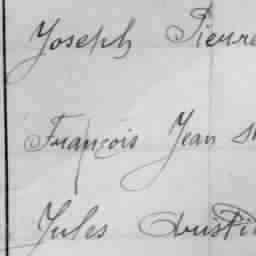 Joseph Pierre
François Jean
Jules